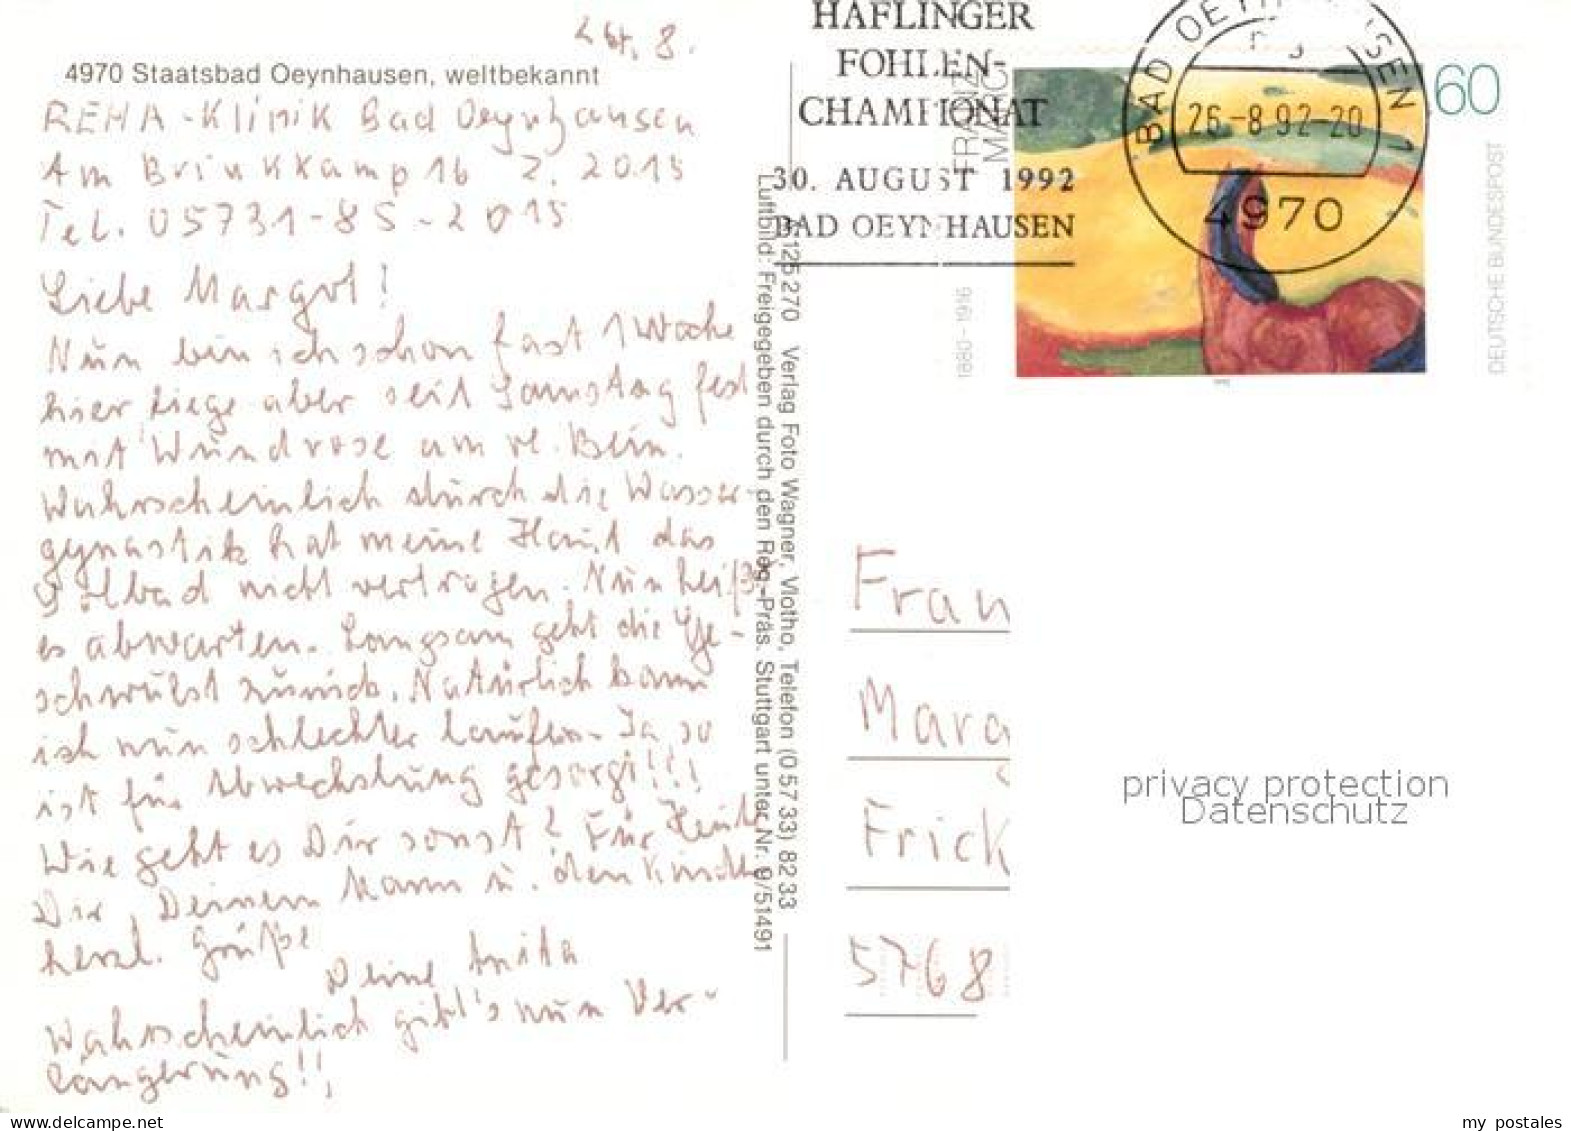 4970 Staatsbad Oeynhausen, weltbekannt
REHA-Klinik Bad Oeynhausen
Am Brinkkamp 16 Z. 2015
Tel. 05731-85-2015
Liebe Margot!
Nun bin ich schon fast 1 Woche
hier liege aber seit Samstag fest
mit Wundrose am re. Bein.
Wahrscheinlich durch die Wasser-
gymnastik hat meine Haut das
Solbad nicht vertragen. Nun heißt
es abwarten. Langsam geht die Ge-
schwulst zurück. Natürlich kann
ich nun schlechter laufen. Ja, so
ist für Abwechslung gesorgt!!!
Wie geht es Dir sonst? Für Heute
Dir, Deinem Mann u. den Kindern
herzl. Grüße
Deine Anita
Wahrscheinlich gibt's nun Ver-
längerung!!,
125 270 Verlag Foto Wagner, Vlotho, Telefon (0 57 33) 82 33
Luftbild: Freigegeben durch den Reg.-Präs. Stuttgart unter Nr. 9/51491
HAFLINGER
FOHLEN-
CHAMPIONAT
30. AUGUST 1992
BAD OEYNHAUSEN
BAD OEYNHAUSEN 1
26-8.92-20
4970
FRANZ
MARC
1880 - 1916
60
DEUTSCHE BUNDESPOST
Frau
Marg
Frick
5768
privacy protection
Datenschutz
my_postales
www.delcampe.net